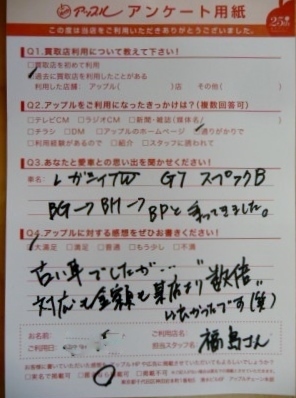 アップル アンケート用紙
25
この度は当店をご利用いただきありがとうございました。
Q1.買取店利用について教えて下さい！
□買取店を初めて利用
□過去に買取店を利用したことがある
利用した店舗: アップル( )店 その他( )
Q2.アップルをご利用になったきっかけは？(複数回答可)
□テレビCM □ラジオCM □新聞・雑誌(媒体名/ )
□チラシ □DM □アップルのホームページ □通りがかりで
□利用経験があるので □紹介 □スタッフに誘われて
Q3.あなたと愛車との思い出を聞かせください！
車名: レガシィTW GT スペックB
BG→BH→BPと乗ってきました。
Q4.アップルに対する感想をぜひお書きください！
□大満足 □満足 □普通 □もう少し □不満
古い車でしたが…
対応も金額も某店より"数倍"
いたかったです(笑)
お名前:
ご利用日:
ご利用店名:
担当スタッフ名: 福島さん